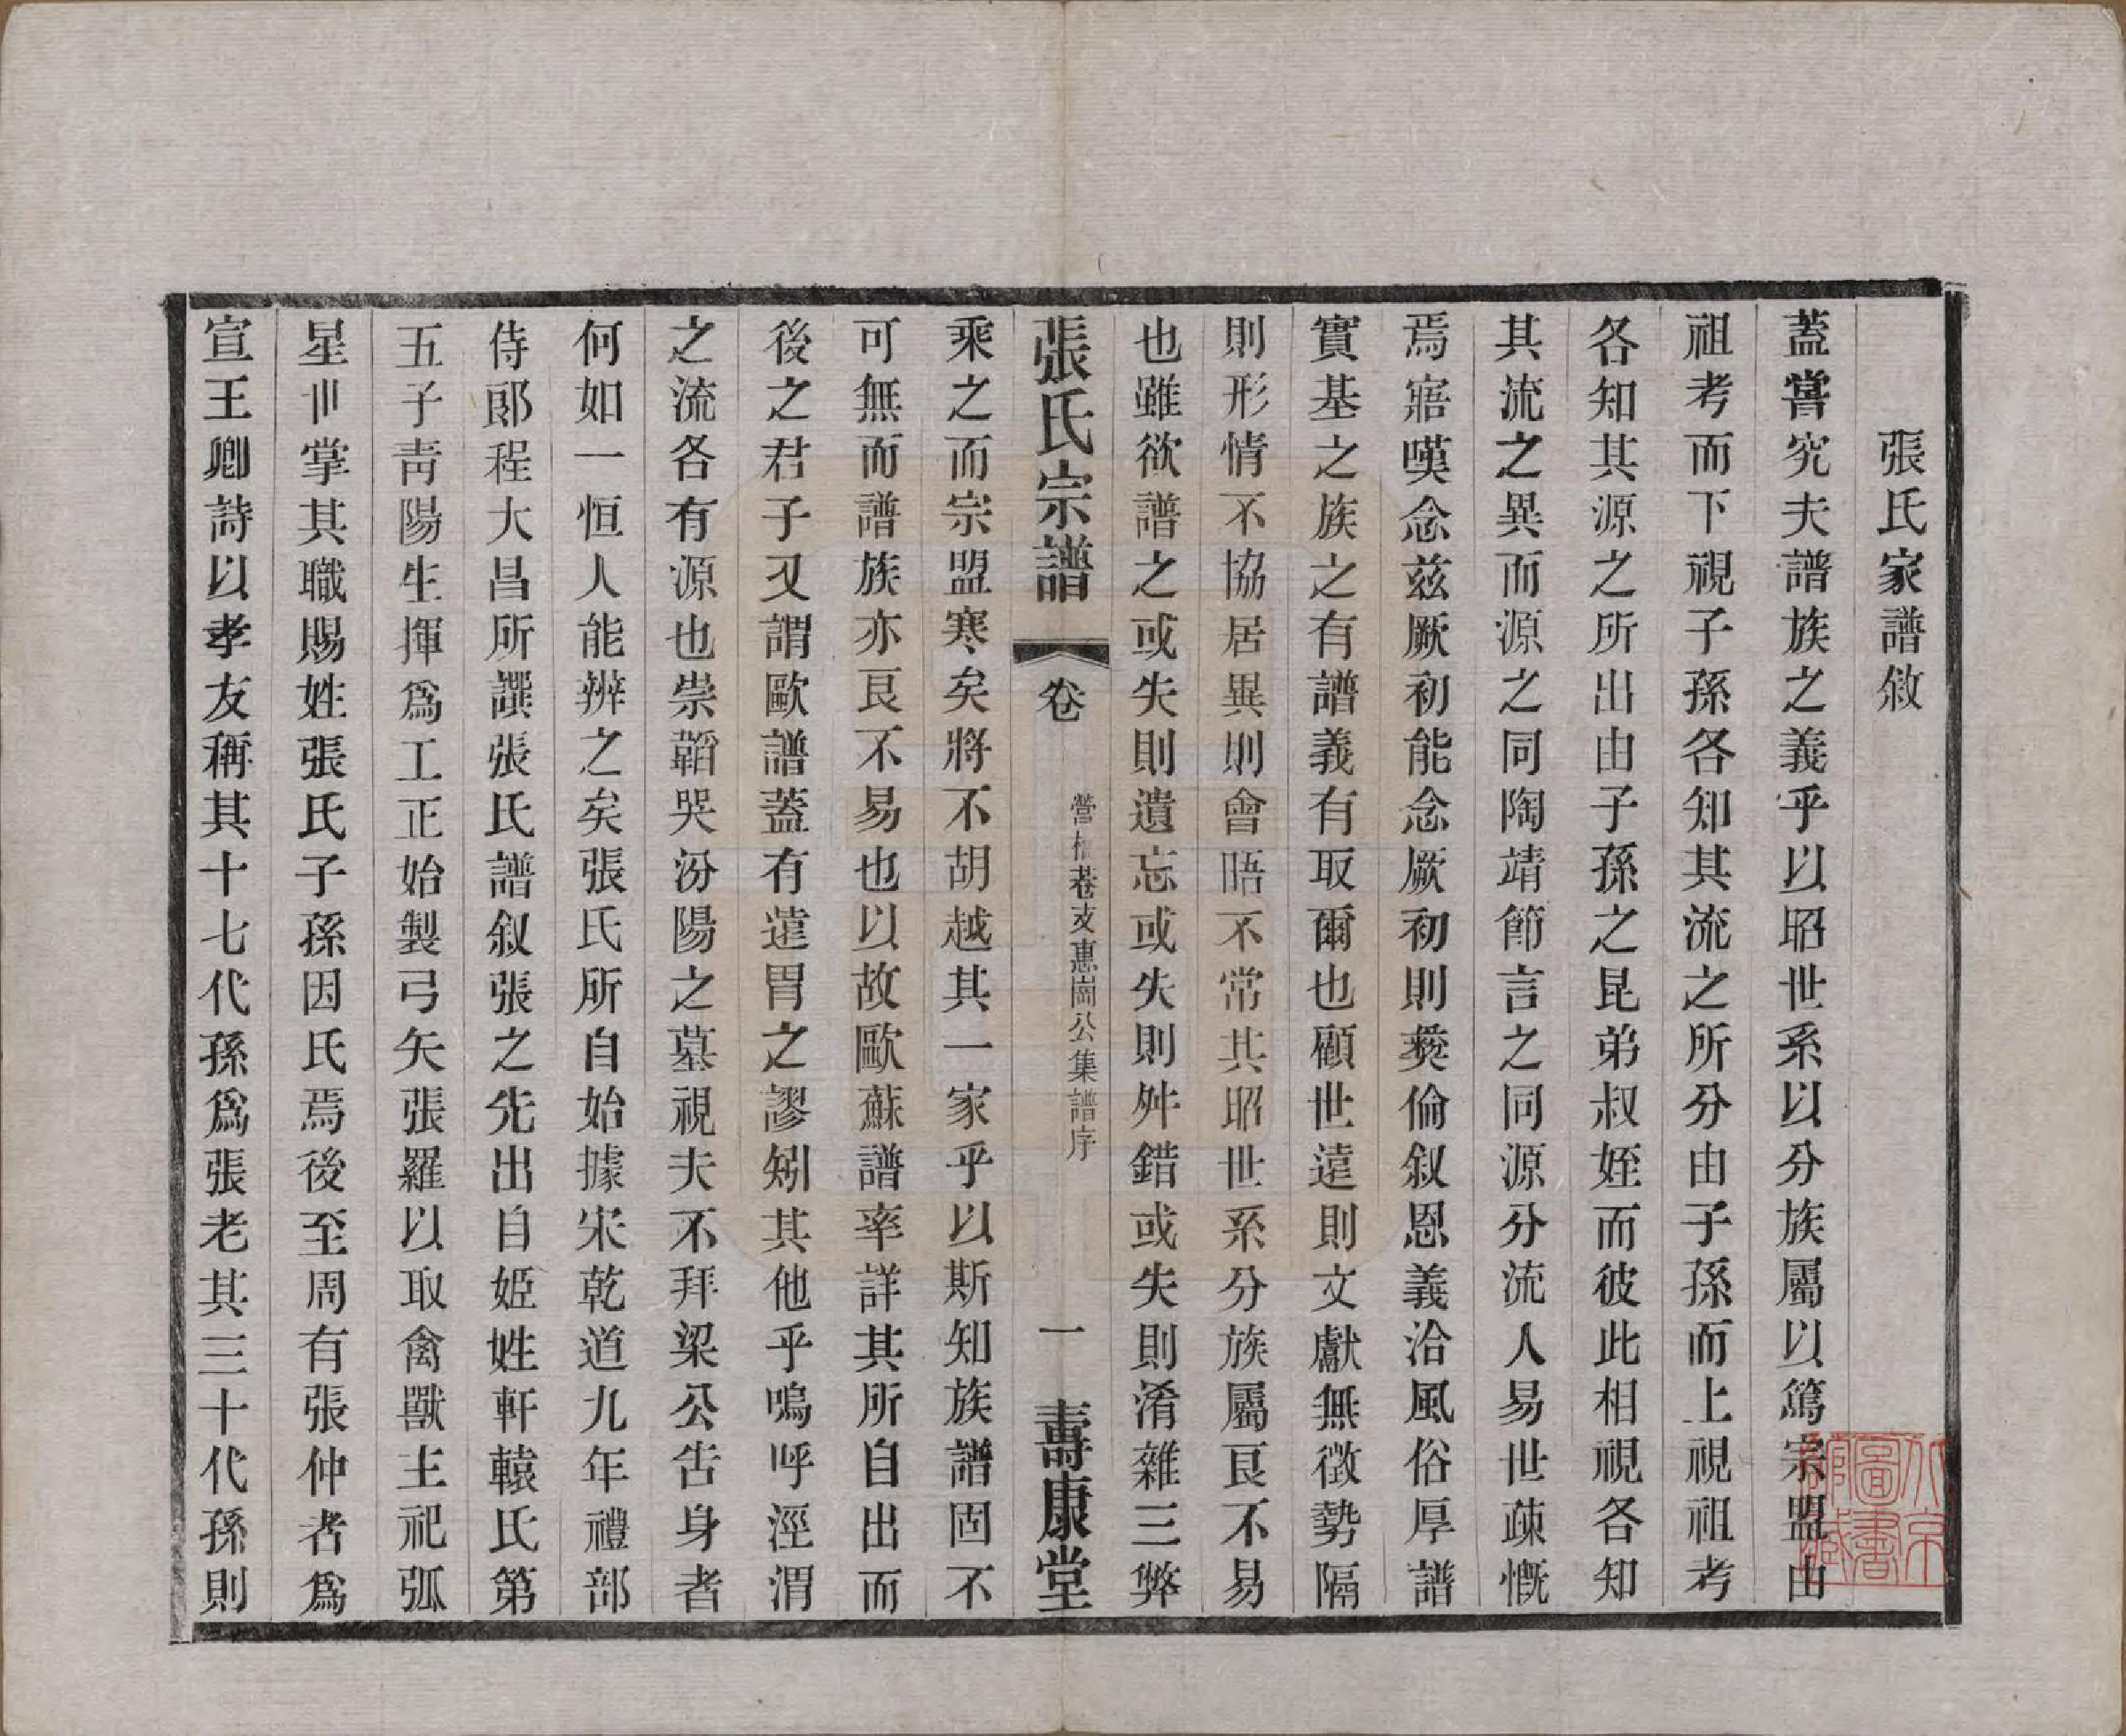 張氏家譜敘
蓋嘗究夫譜族之義乎以昭世系以分族屬以篤宗盟由
祖考而下視子孫各知其流之所分由子孫而上視祖考
各知其源之所出由子孫之昆弟叔姪而彼此相視各知
其流之異而源之同陶靖節言之同源分流人易世疎慨
焉寤嘆念兹厥初能念厥初則彝倫叙恩義洽風俗厚譜
實基之族之有譜義有取爾也顧世遠則文獻無徵勢隔
則形情不協居異則會晤不常其昭世系分族屬良不易
也雖欲譜之或失則遺忘或失則舛錯或失則淆雜三弊
張氏宗譜 卷 營 巷支惠崗公集譜序 一 壽康堂
乘之而宗盟寒矣將不胡越其一家乎以斯知族譜固不
可無而譜族亦良不易也以故歐蘇譜率詳其所自出而
後之君子又謂歐譜蓋有遠胃之謬矧其他乎嗚呼涇渭
之流各有源也崇韜哭汾陽之墓視夫不拜梁公告身者
何如一恒人能辨之矣張氏所自始據宋乾道九年禮部
侍郎程大昌所譔張氏譜叙張之先出自姬姓軒轅氏第
五子靑陽生揮爲工正始製弓矢張羅以取禽獸主祀弧
星世掌其職賜姓張氏子孫因氏焉後至周有張仲者爲
宣王卿詩以孝友稱其十七代孫爲張老其三十代孫則